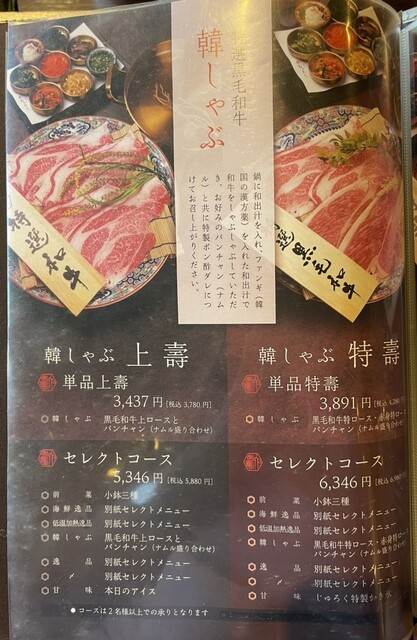 特選黒毛和牛
韓しゃぶ
鍋に和出汁を入れ、ファンギ(韓
国の漢方薬)を入れた和出汁で
和牛をしゃぶしゃぶしていただ
き、お好みのバンチャン(ナム
ル)と共に特製ポン酢ダレにつ
けてお召し上がりください。
特選和牛
特選黒毛和牛
韓しゃぶ 上壽
単品上壽
3,437円 [税込 3,780円]
韓しゃぶ 黒毛和牛上ロースと
バンチャン(ナムル盛り合わせ)
セレクトコース
5,346円 [税込 5,880円]
前菜 小鉢三種
海鮮逸品 別紙セレクトメニュー
低温加熱逸品 別紙セレクトメニュー
韓しゃぶ 黒毛和牛上ロースと
バンチャン(ナムル盛り合わせ)
逸品 別紙セレクトメニュー
〆 別紙セレクトメニュー
甘味 本日のアイス
●コースは2名様以上での承りとなります
韓しゃぶ 特壽
単品特壽
3,891円 [税込
韓しゃぶ 黒毛和牛特ロース・赤身特ロー
バンチャン(ナムル盛り合わせ)
セレクトコース
6,346円
前菜 小鉢三種
海鮮逸品 別紙セレクトメニュー
低温加熱逸品 別紙セレクトメニュー
韓しゃぶ 黒毛和牛特ロース・赤身特ロー
バンチャン(ナムル盛り合わせ)
逸品 別紙セレクトメニュー
〆 別紙セレクトメニュー
甘味 じゅろく特製かき氷